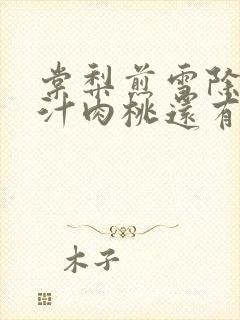 棠梨煎雪除
汁肉桃還有
木子